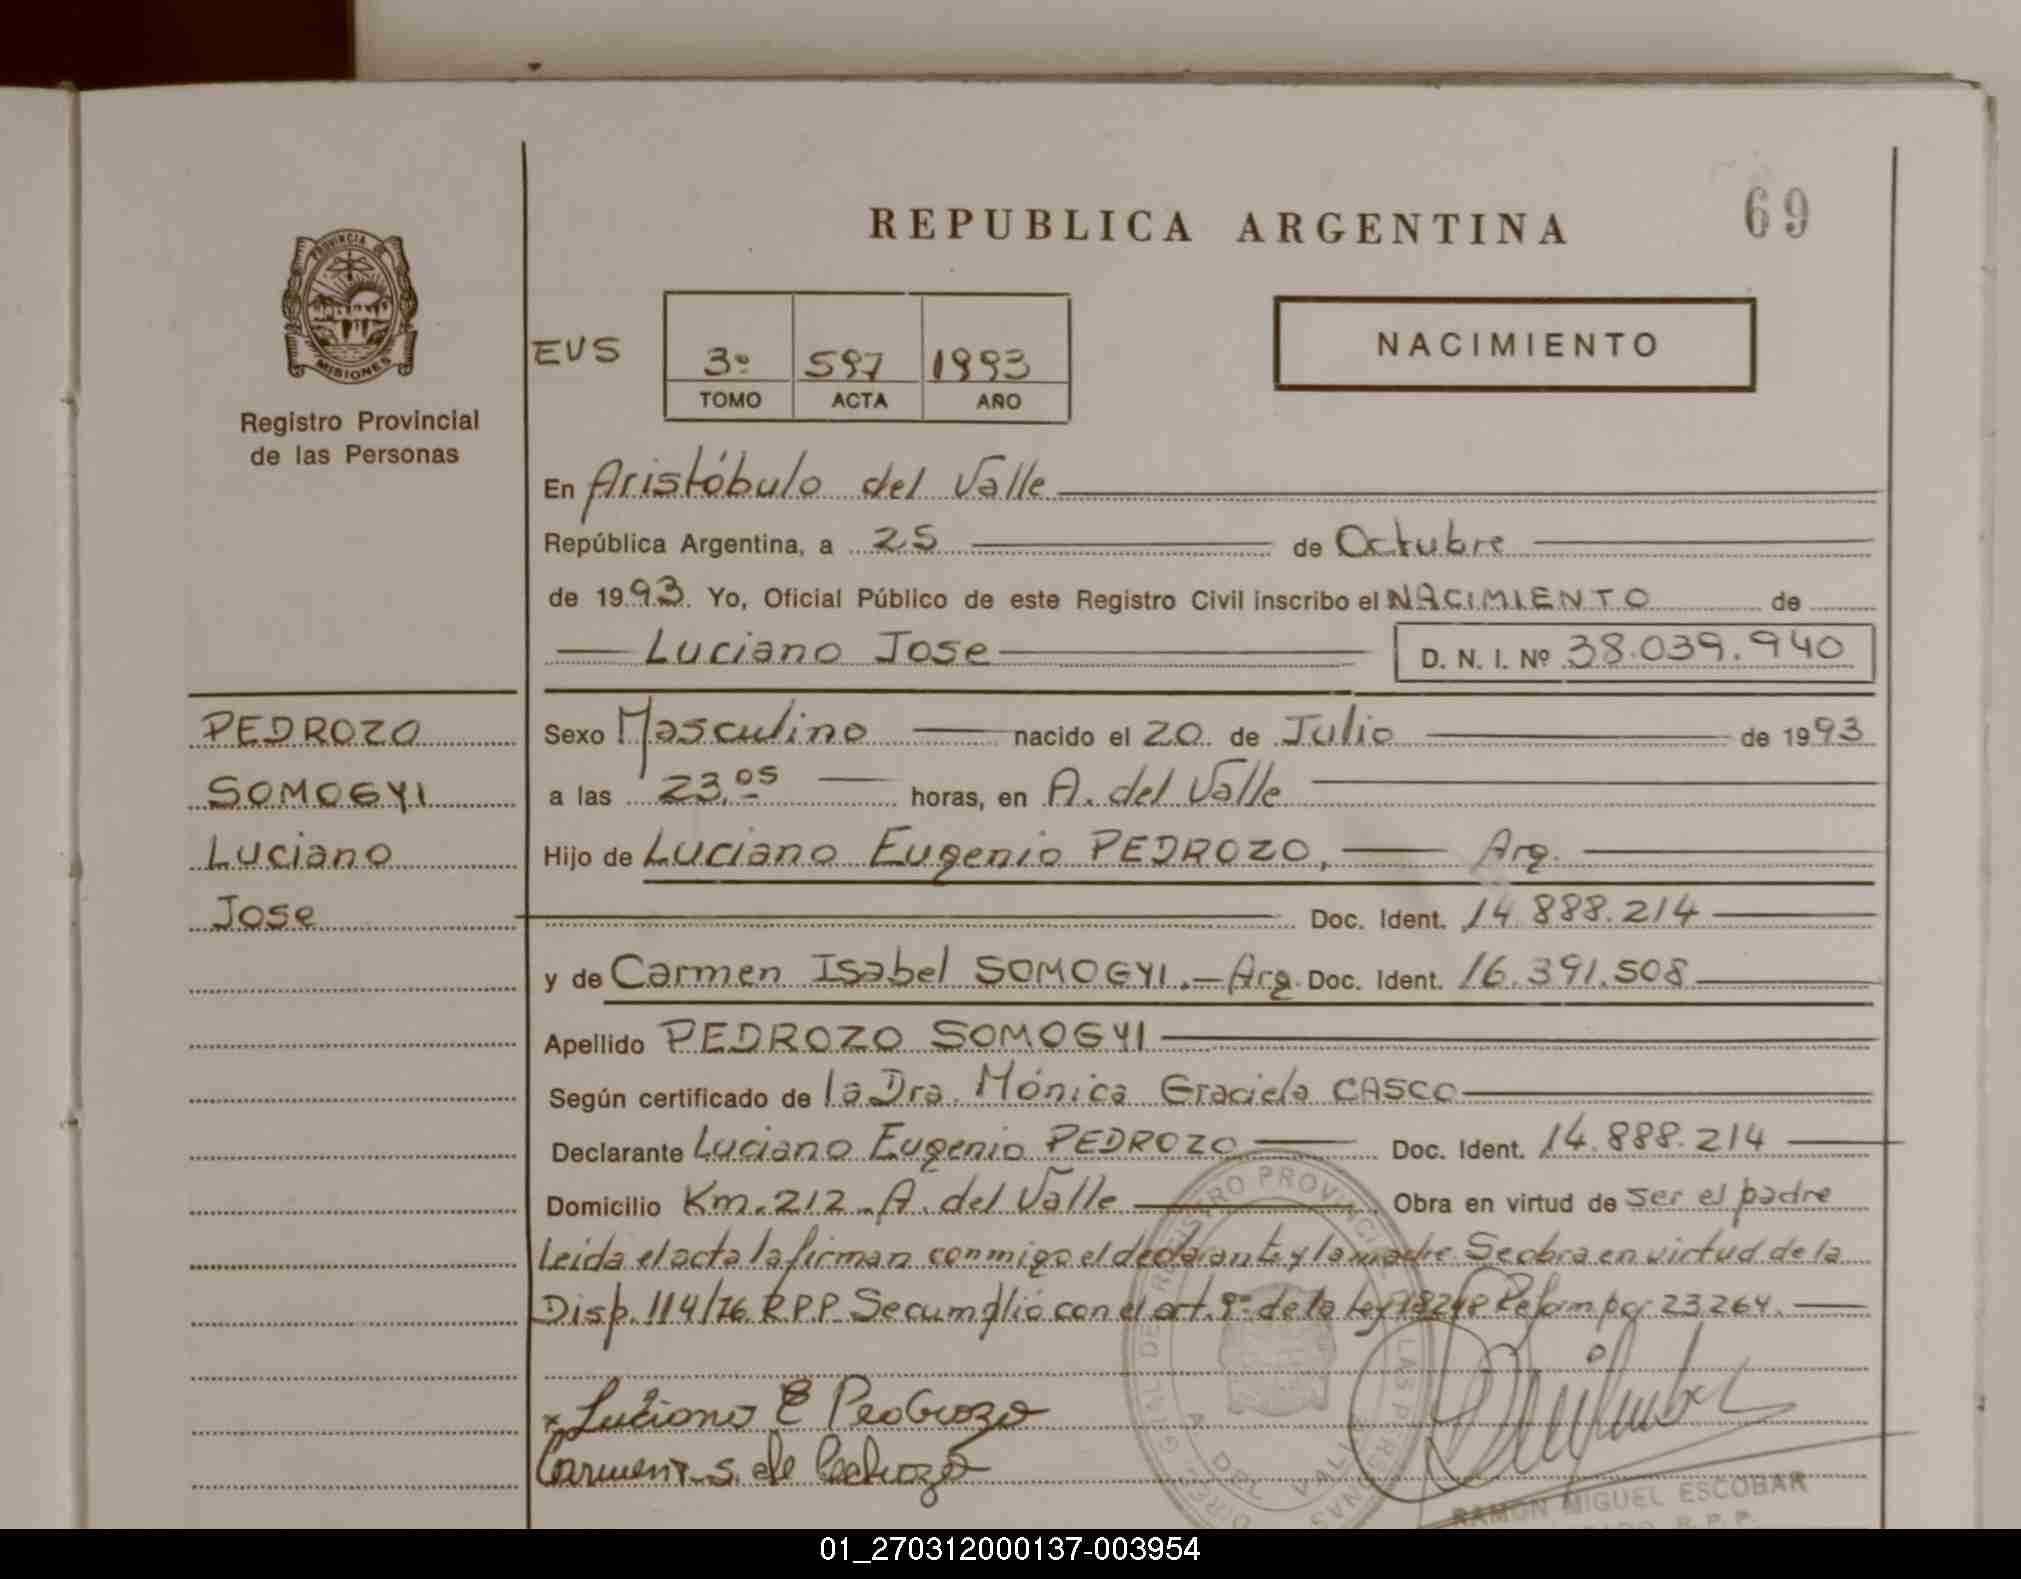 69
REPUBLICA ARGENTINA
PROVINCIA DE
MISIONES
Registro Provincial
de las Personas
NACIMIENTO
EVS
3º 597 1993
TOMO ACTA AÑO
En Aristóbulo del Valle
República Argentina, a 25 de Octubre
de 1993. Yo, Oficial Público de este Registro Civil inscribo el NACIMIENTO de
Luciano Jose D. N. I. Nº 38.039.940
PEDROZO
SOMOGYI
Luciano
Jose
Sexo Masculino nacido el 20 de Julio de 1993
a las 23,05 horas, en A. del Valle
Hijo de Luciano Eugenio PEDROZO, Arg.
Doc. Ident. 14.888.214
y de Carmen Isabel SOMOGYI.- Arg. Doc. Ident. 16.391.508
Apellido PEDROZO SOMOGYI
Según certificado de la Dra. Mónica Graciela CASCO
Declarante Luciano Eugenio PEDROZO Doc. Ident. 14.888.214
Domicilio Km. 212 - A. del Valle Obra en virtud de ser el padre
Leída el acta la firman conmigo el declarante y la madre. Se obra en virtud de la
Disp. 114/76 R.P.P. Se cumplió con el art. 9º de la Ley 18248 Reform por 23264.
x Luciano E Pedrozo
Carmen S. de Pedrozo
RAMON MIGUEL ESCOBAR
R.P.P.
01_270312000137-003954